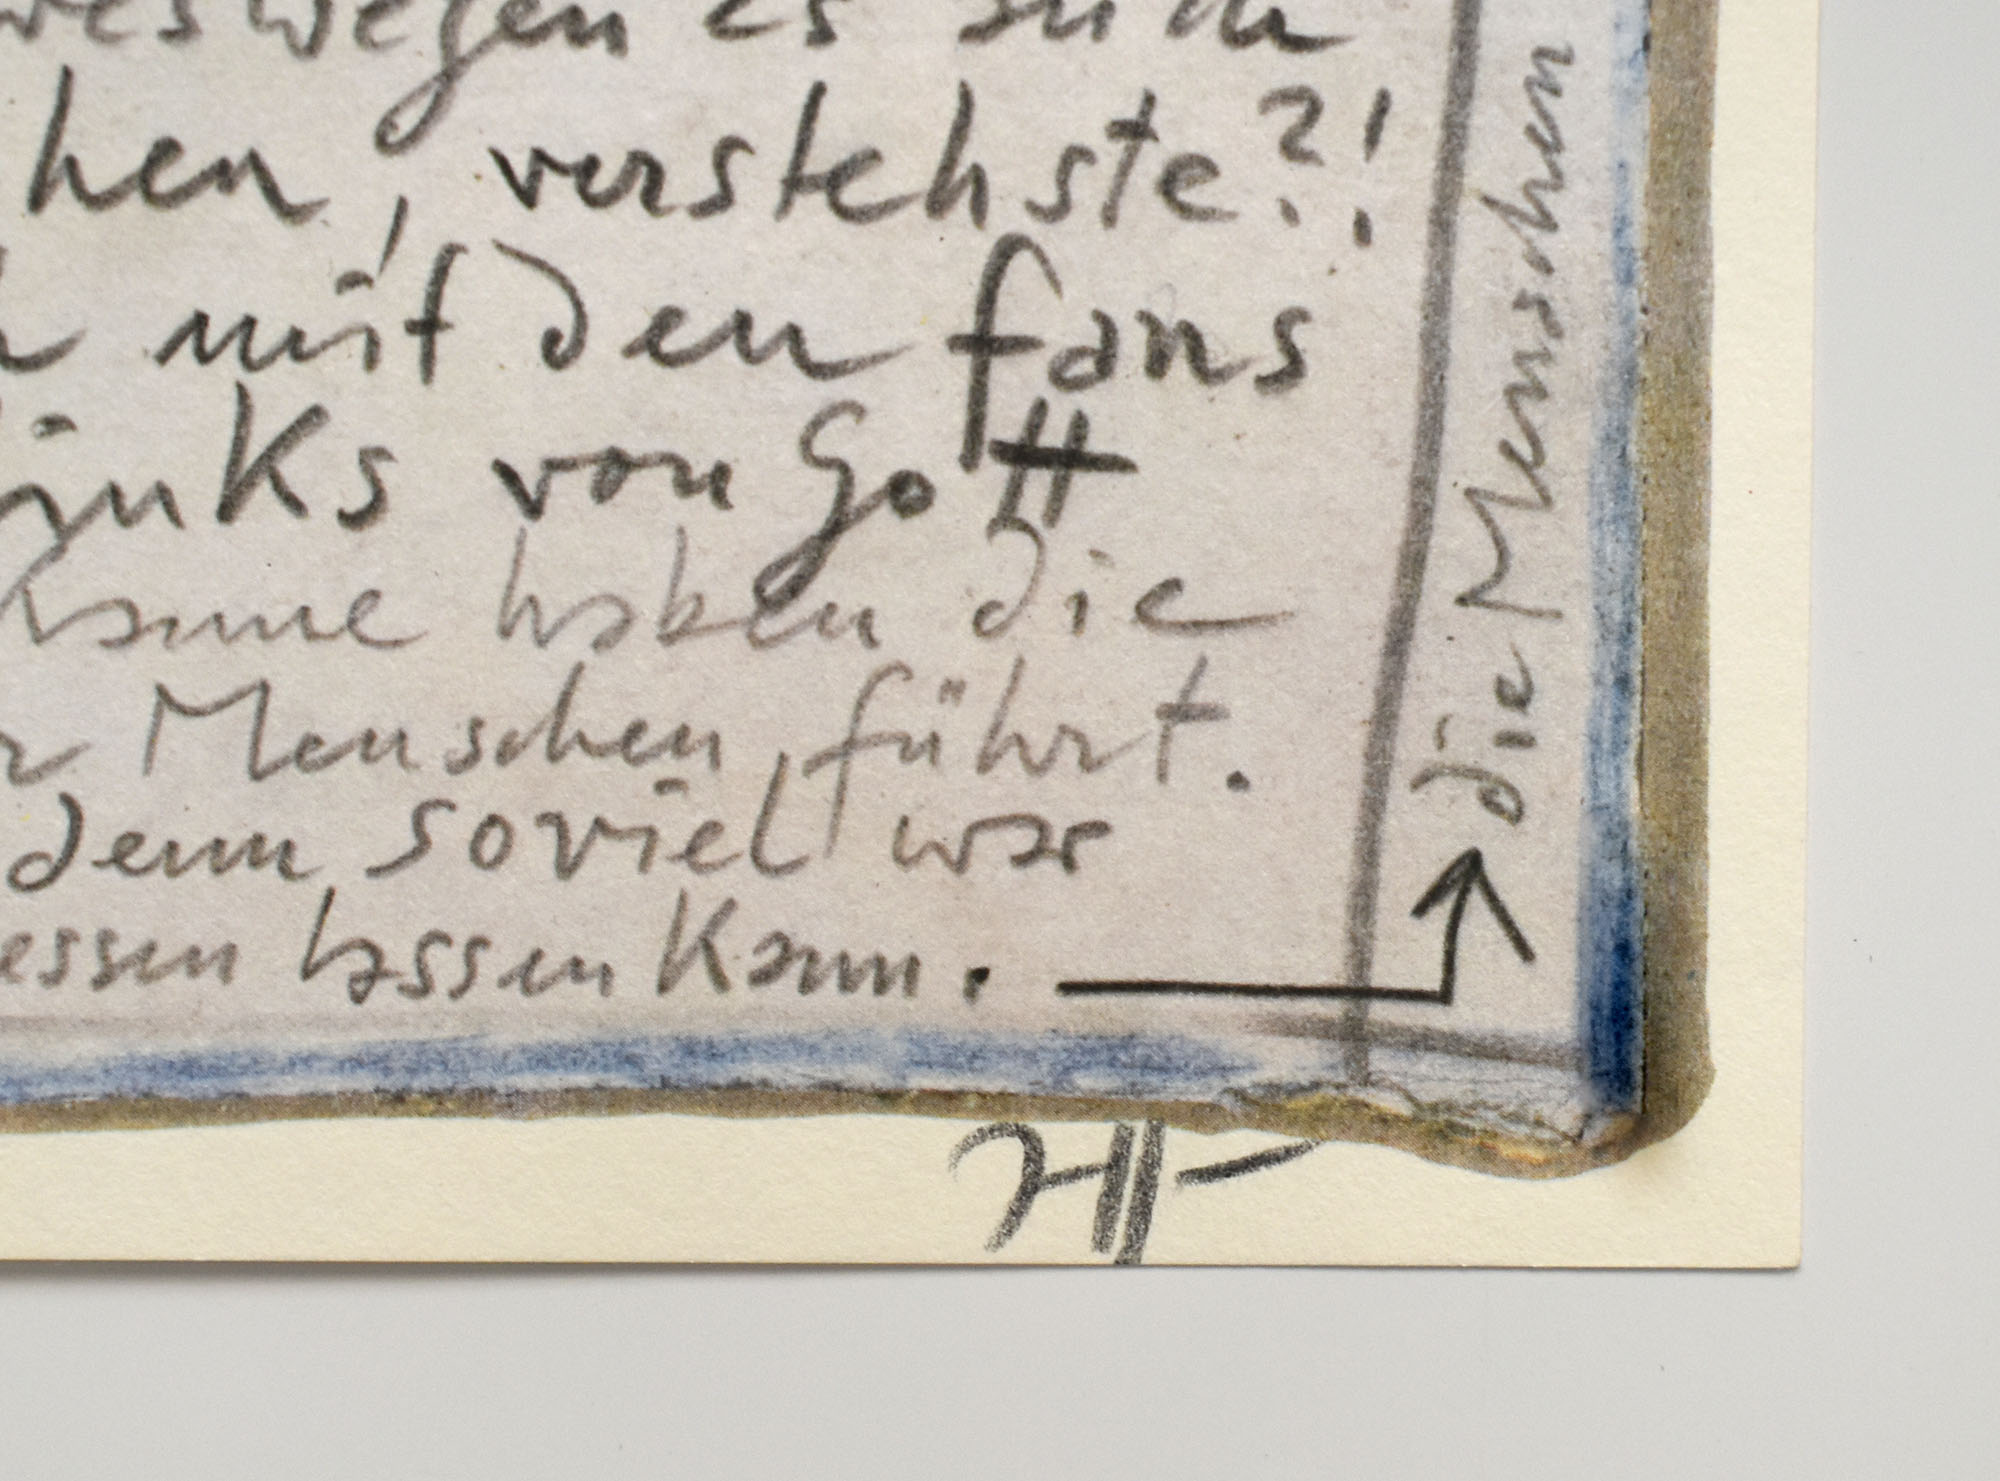 weswegen es
hen, verstehste?!
mit den fans
von Gott
haben die
Menschen führt.
denn soviel war
essen lassen kann.
die Menschen